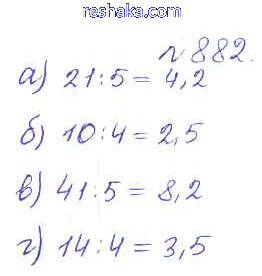 reshaka.com
№ 882.
а) 21:5 = 4,2
б) 10:4 = 2,5
в) 41:5 = 8,2
г) 14:4 = 3,5